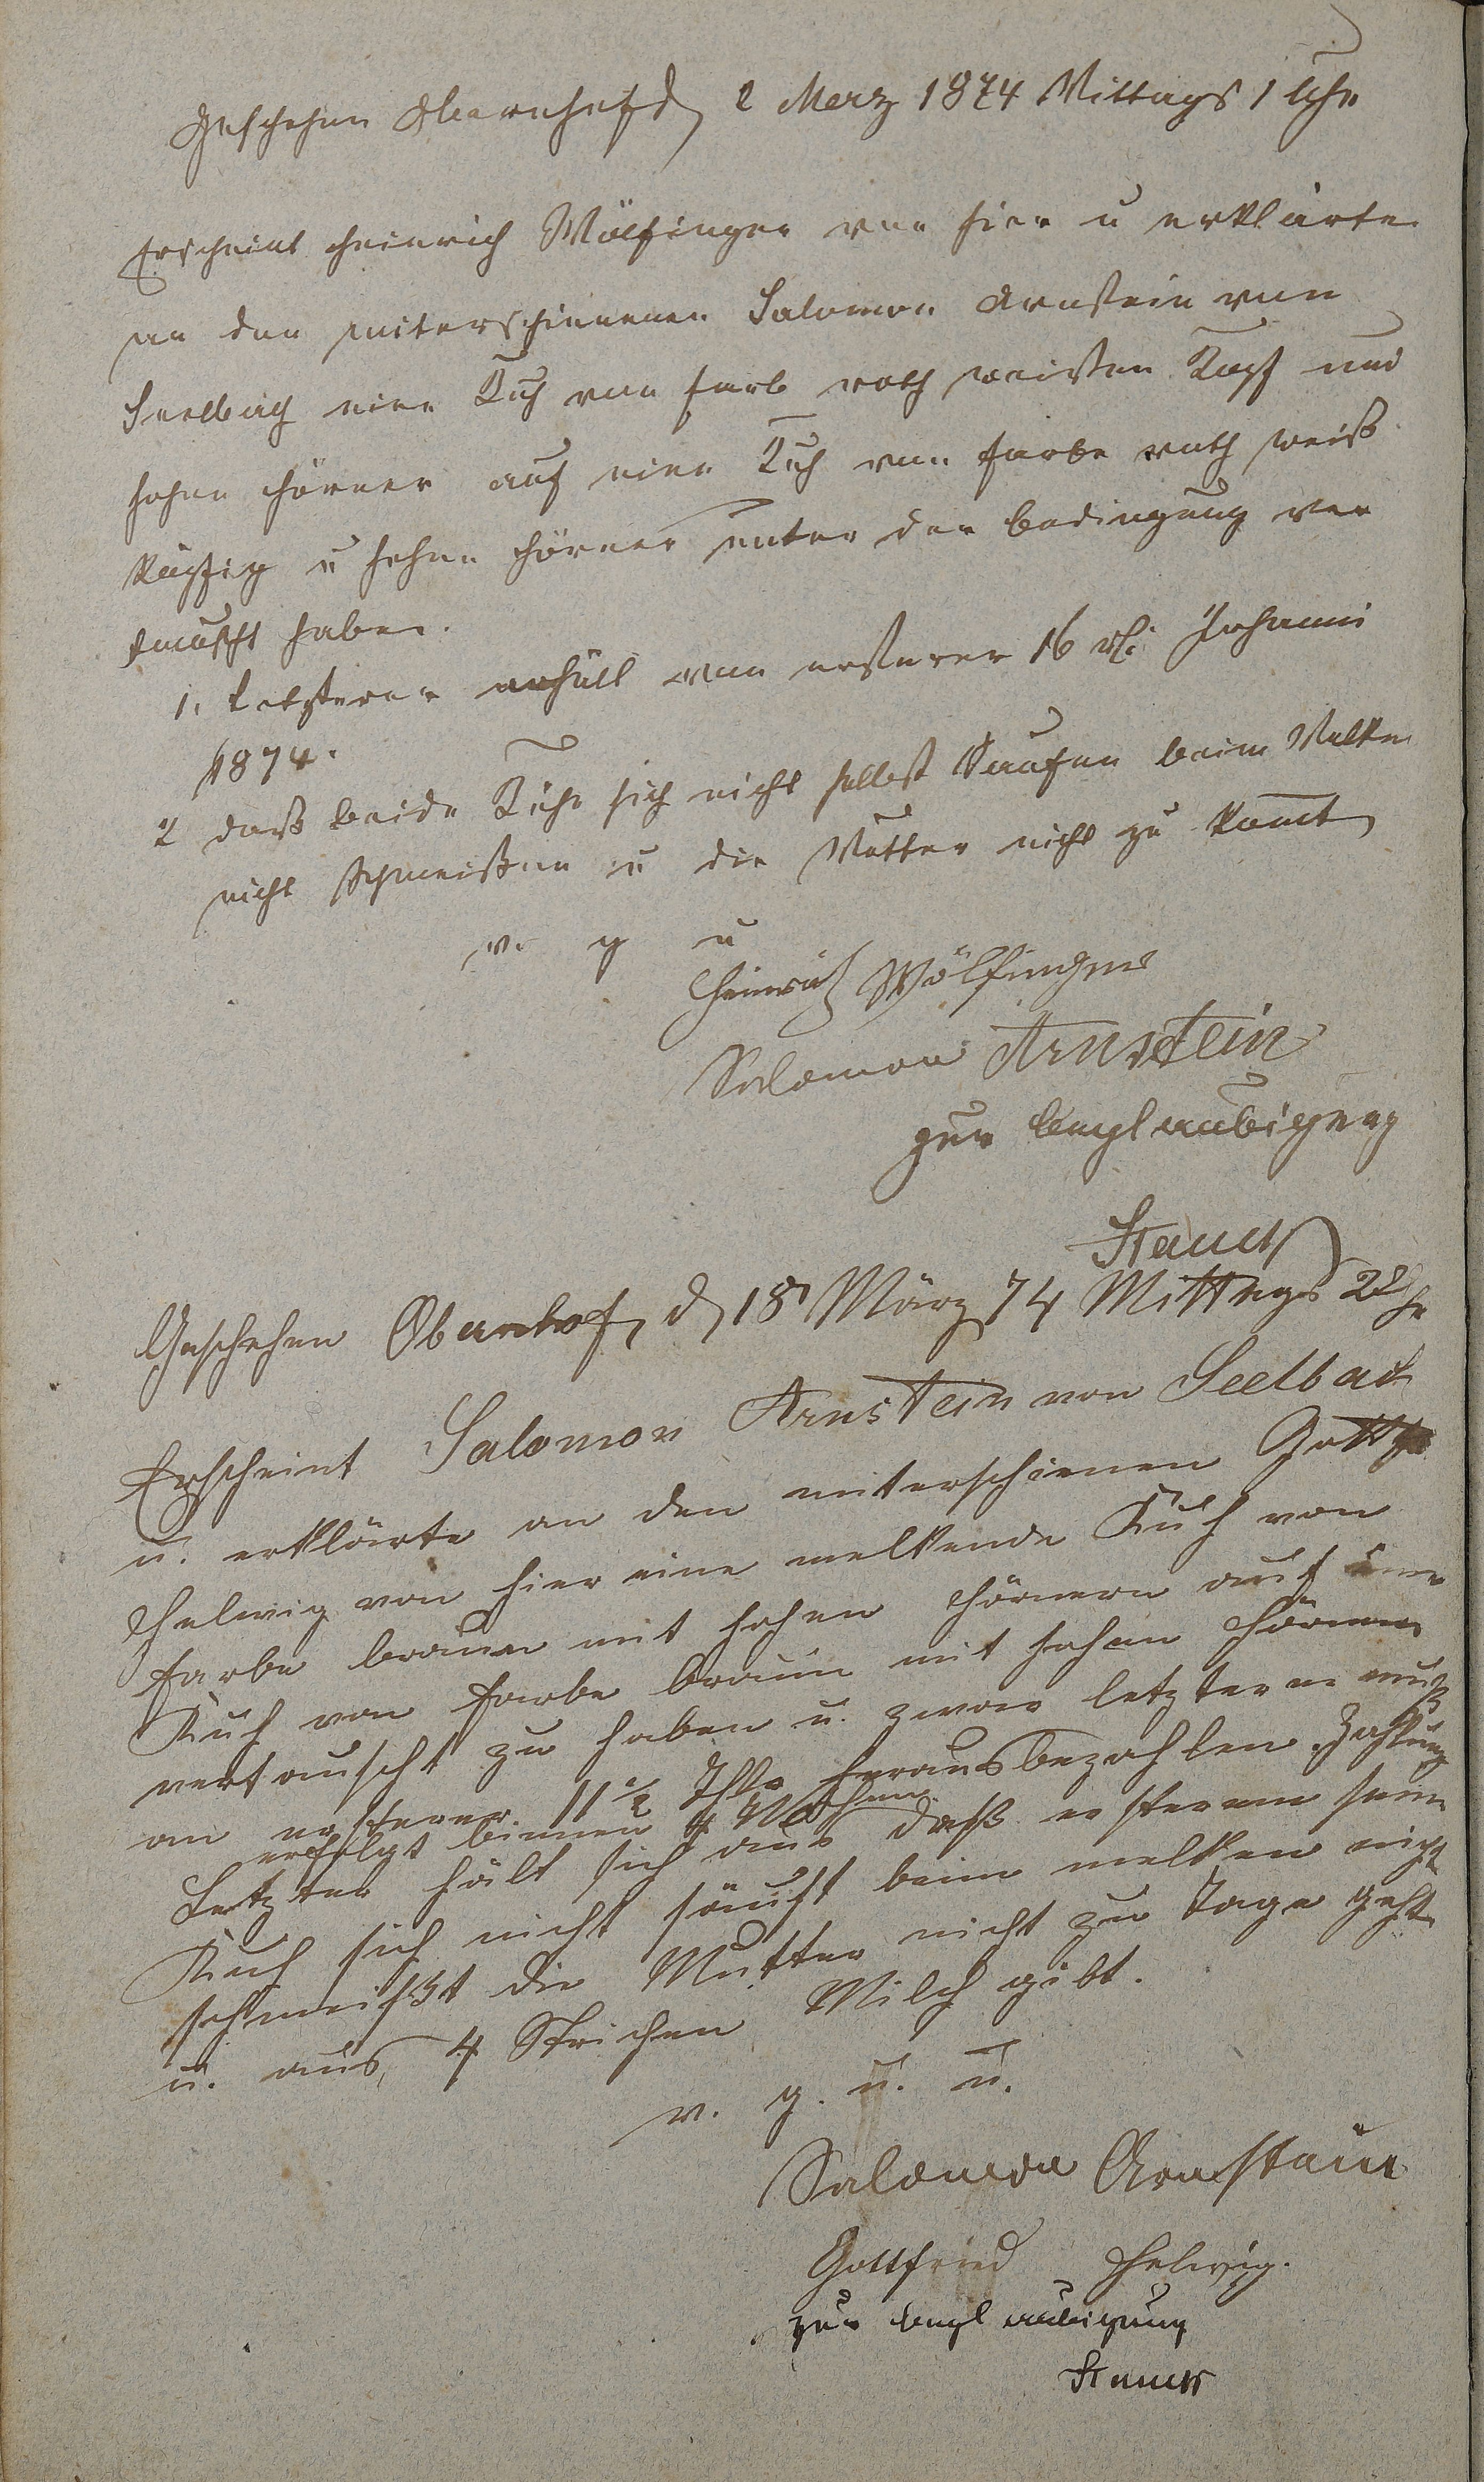 Geschehen Obernhof d 2 Merz 1874 Mittags 1 Uhr
Erscheint Heinrich Wölfinger von hier u erklärte
an den miterschienenen Salomon Arnstein von
Seelbach eine Kuh von farb roth weißen Kopf und
hohen Hörner auf eine Kuh von farbe roth weiß
köpfig u hohen Hörner unter der bedingung ver
tauscht haben.
1, Letzterer erhält von ersterer 16 rl: Johanni
1874.
2 daß beide Kühe sich nicht selbst Saufen beim Melken
nicht Schmeißen u die Mutter nicht zu komt
v. g u
Heinrich Wölfinger
Salomon Arnstein
zur beglaubigung
Stauch
Geschehen Obernhof, d 18 März 74 Mittags 2 Uhr
Erscheint Salomon Arnstein von Seelbach
u. erklärte an den miterschienen Gottfr
Helwig von hier eine melkende Kuh von
farbe braun mit hohen Hörnern auf eine
Kuh von farbe braun mit hohen Hörnern
vertauscht zu haben u. zwar letzterer muß
an ersterer 11 1/2 Thlr herausbezahlen. Zahlung
erfolgt binnen 4 Wochen.
Letzter hält sich aus daß ersterem seine
Kuh sich nicht säuft beim melken nicht
schmeißt die Mutter nicht zu Tage geht
u. aus 4 Strichen Milch gibt.
v. g. u. u.
Salomon Arnstein
Gottfried Helwig.
zur beglaubigung
Stauch